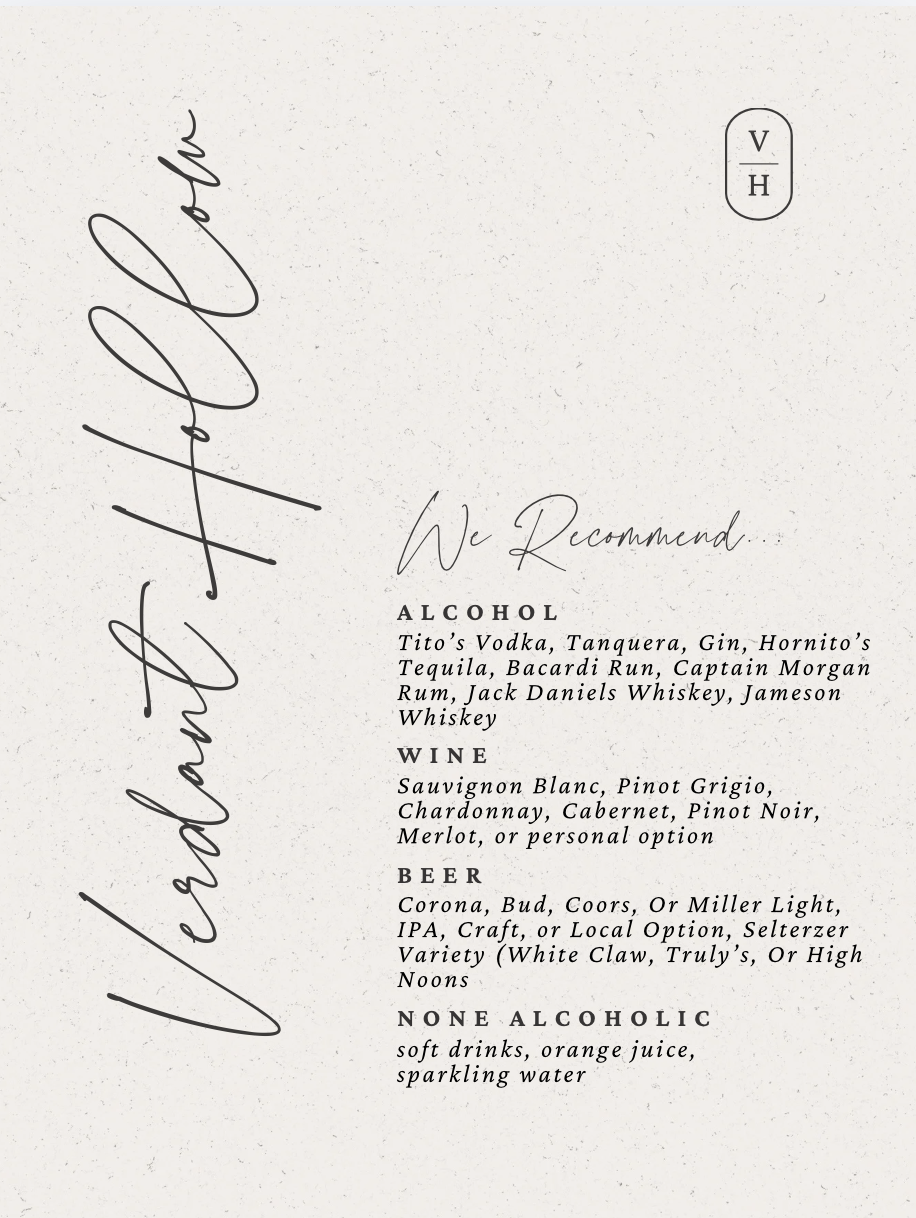 Verdant Hollow
V
H
We Recommend...
ALCOHOL
Tito’s Vodka, Tanquera, Gin, Hornito’s
Tequila, Bacardi Run, Captain Morgan
Rum, Jack Daniels Whiskey, Jameson
Whiskey
WINE
Sauvignon Blanc, Pinot Grigio,
Chardonnay, Cabernet, Pinot Noir,
Merlot, or personal option
BEER
Corona, Bud, Coors, Or Miller Light,
IPA, Craft, or Local Option, Selterzer
Variety (White Claw, Truly’s, Or High
Noons
NONE ALCOHOLIC
soft drinks, orange juice,
sparkling water